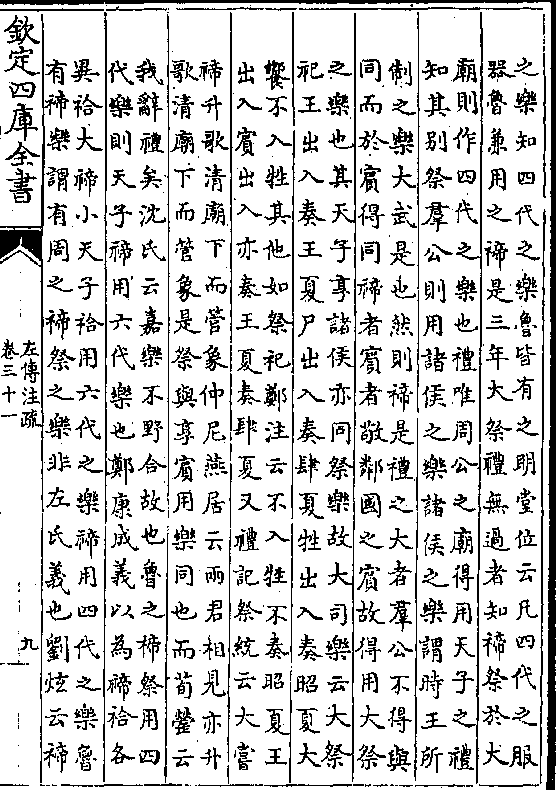 之樂知四代之樂魯皆有之明堂位云凡四代之服
器魯兼用之禘是三年大祭禮無過者知禘祭於大
廟則作四代之樂也禮唯周公之廟得用天子之禮
知其别祭羣公則用諸侯之樂諸侯之樂謂時王所
制之樂大武是也然則禘是禮之大者羣公不得與
同而於賓得同禘者賓者敬鄰國之賓故得用大祭
之樂也其天子享諸侯亦同祭樂故大司樂云大祭
祀王出入奏王夏尸出入奏肆夏牲出入奏昭夏大
饗不入牲其他如祭祀鄭注云不入牲不奏昭夏王
出入賓出入亦奏王夏奏肆夏又禮記祭統云大嘗
禘升歌清廟下而管象仲尼燕居云兩君相見亦升
歌清廟下而管象是祭與享賓用樂同也而荀罃云
我辭禮矣沈氏云嘉樂不野合故也魯之禘祭用四
代樂則天子禘用六代樂也鄭康成義以為禘祫各
異祫大禘小天子祫用六代之樂禘用四代之樂魯
有禘樂謂有周之禘祭之樂非左氏義也劉炫云禘
欽定四庫全書
左傳注疏
卷三十一
九